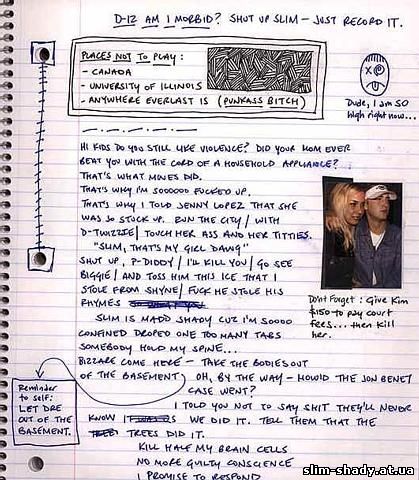 D-12 AM I MORBID? SHUT UP SLIM - JUST RECORD IT.
PLACES NOT TO PLAY:
- CANADA
- UNIVERSITY OF ILLINOIS
- ANYWHERE EVERLAST IS (PUNKASS BITCH)
Dude, I am SO
high right now...
HI KIDS DO YOU STILL LIKE VIOLENCE? DID YOUR MOM EVER
BEAT YOU WITH THE CORD OF A HOUSEHOLD APPLIANCE?
THAT'S WHAT MINES DID.
THAT'S WHY I'M SOOOOO FUCKED UP.
THAT'S WHY I TOLD JENNY LOPEZ THAT SHE
WAS SO STUCK UP. RUN THE CITY/ WITH
D-TWIZZIE/ TOUCH HER ASS AND HER TITTIES.
"SLIM, THAT'S MY GIRL DAWG"
SHUT UP, P-DIDDY/ I'LL KILL YOU/ GO SEE
BIGGIE/ AND TOSS HIM THIS ICE THAT I
STOLE FROM SHYNE/ FUCK HE STOLE HIS
RHYMES
SLIM IS MADD SHADY CUZ I'M SOOOO
CONFINED DROPED ONE TOO MANY TABS
SOMEBODY HOLD MY SPINE...
BIZZARE COME HERE - TAKE THE BODIES OUT
OF THE BASEMENT
OH, BY THE WAY - HOW'D THE JON BENET
CASE WENT?
I TOLD YOU NOT TO SAY SHIT THEY'LL NEVER
KNOW IT WE DID IT. TELL THEM THAT THE
TREE TREES DID IT.
KILL HALF MY BRAIN CELLS
NO MORE GUILTY CONSCIENCE
I PROMISE TO RESPOND
Don't Forget: Give Kim
$150 to pay court
fees... then kill
her.
Reminder
to self:
LET DRE
OUT OF THE
BASEMENT.
slim-shady.at.ua